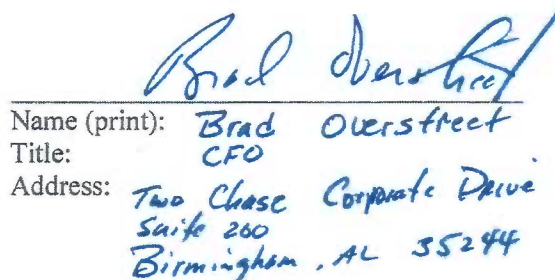 Brad Overstreet
Name (print): Brad Overstreet
Title: CFO
Address: Two Chase Corporate Drive
Suite 200
Birmingham, AL 35244